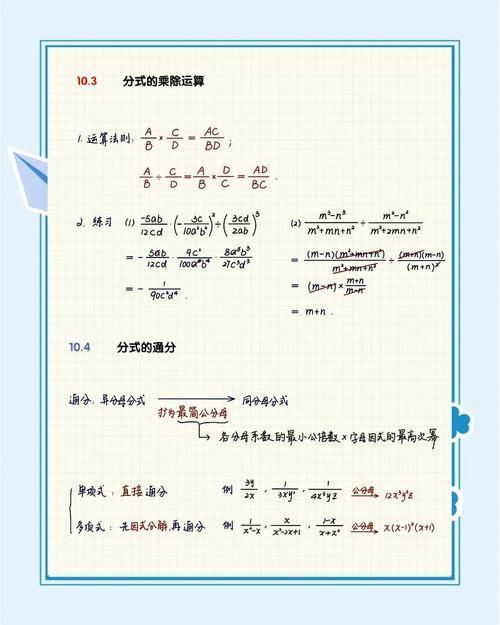 10.3 分式的乘除运算
1. 运算法则: A/B × C/D = AC/BD ;
A/B ÷ C/D = A/B × D/C = AD/BC .
2. 练习 (1) -5ab/12cd · (- 3c/10a²b²)² ÷ (3cd/2ab)³
= - 5ab/12cd · 9c²/100a⁴b⁴ · 8a³b³/27c³d³
= - 1/90c²d⁴ .
(2) m³-n³/m²+mn+n² ÷ m²-n²/m²+2mn+n²
= (m-n)(m²+mn+n²)/m²+mn+n² ÷ (m+n)(m-n)/(m+n)²
= (m-n) × m+n/m-n
= m+n .
10.4 分式的通分
通分: 异分母分式 → 同分母分式
扩为最简公分母
→ 各分母系数的最小公倍数 × 字母因式的最高次幂
单项式: 直接通分 例 3y/2x , 1/3xy² , 1/4x³yz 公分母→ 12x³y²z
多项式: 先因式分解,再通分 例 1/x²-x , x/x²-2x+1 , 1-x/x+x² 公分母→ x(x-1)²(x+1)